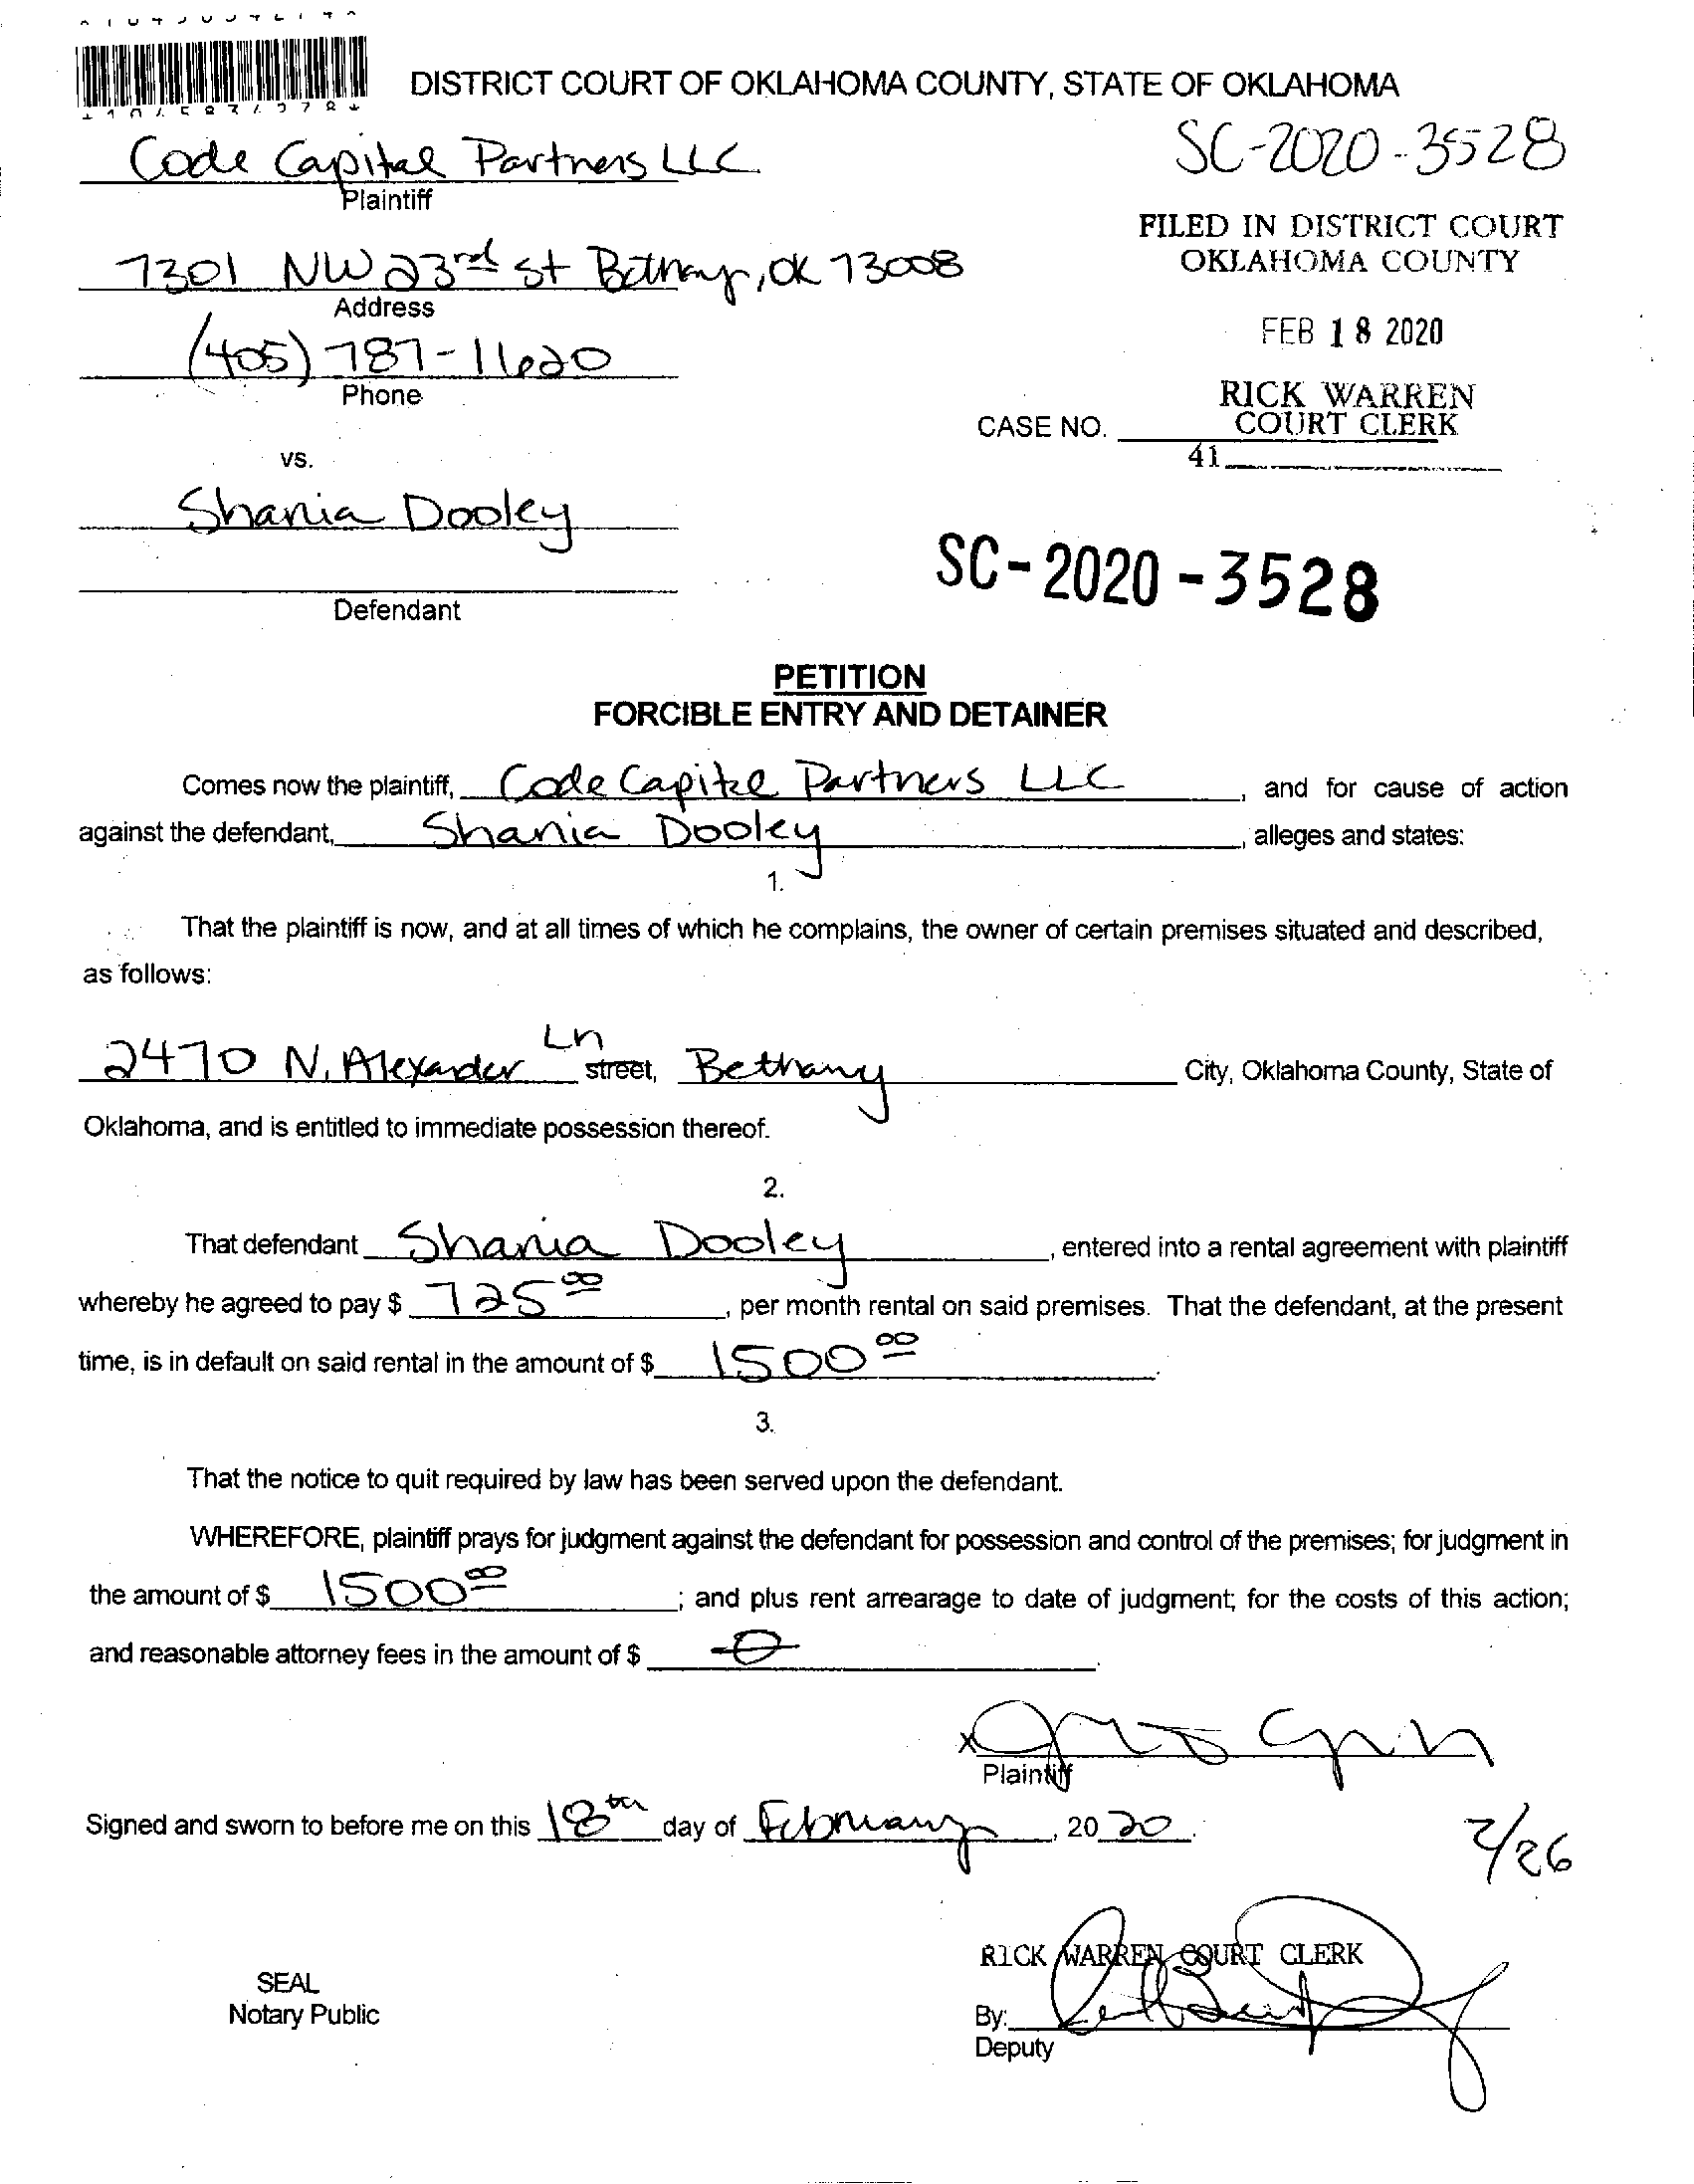 DISTRICT COURT OF OKLAHOMA COUNTY, STATE OF OKLAHOMA
Code Capital Partners LLC
SC-2020-3528
Plaintiff
FILED IN DISTRICT COURT
OKLAHOMA COUNTY
7301 NW 23rd St Bethany, OK 73008
Address
FEB 18 2020
(405) 787-1620
Phone
RICK WARREN
COURT CLERK
CASE NO.
41
vs.
Shania Dooley
SC-2020-3528
Defendant
PETITION
FORCIBLE ENTRY AND DETAINER
Comes now the plaintiff, Code Capital Partners LLC, and for cause of action
against the defendant, Shania Dooley, alleges and states:
1.
That the plaintiff is now, and at all times of which he complains, the owner of certain premises situated and described,
as follows:
2470 N. Alexander Ln street, Bethany City, Oklahoma County, State of
Oklahoma, and is entitled to immediate possession thereof.
2.
That defendant Shania Dooley, entered into a rental agreement with plaintiff
whereby he agreed to pay $ 725 00, per month rental on said premises. That the defendant, at the present
time, is in default on said rental in the amount of $ 1500 00.
3.
That the notice to quit required by law has been served upon the defendant.
WHEREFORE, plaintiff prays for judgment against the defendant for possession and control of the premises; for judgment in
the amount of $ 1500 00; and plus rent arrearage to date of judgment; for the costs of this action;
and reasonable attorney fees in the amount of $ 0.
x
Plaintiff
Signed and sworn to before me on this 18th day of February, 20 20.
2/26
RICK WARREN COURT CLERK
SEAL
Notary Public
By:
Deputy